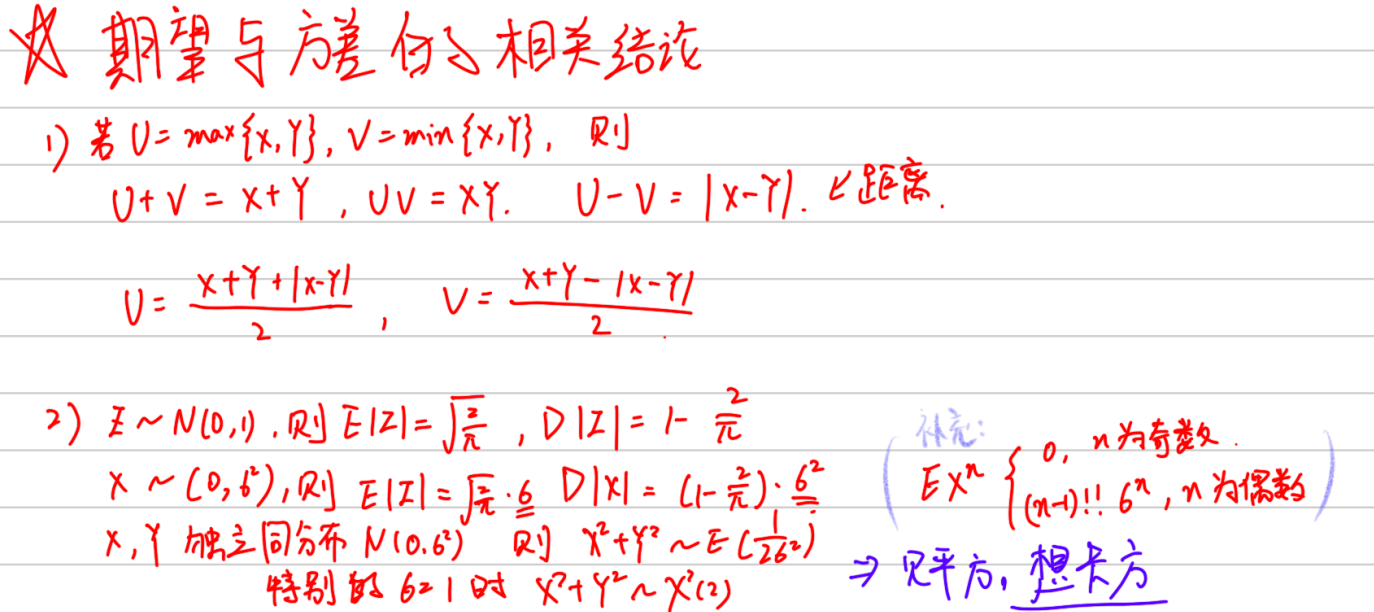 ☆ 期望与方差的相关结论
1) 若 U = max{X,Y}, V = min{X,Y}, 则
U+V = X+Y , UV = XY. U-V = |X-Y|. ∠距离.
U = (X+Y+|X-Y|)/2 , V = (X+Y-|X-Y|)/2
2) Z ~ N(0,1), 则 E|Z| = √(2/π) , D|Z| = 1 - 2/π
X ~ (0,σ²), 则 E|Z| = √(2/π)·σ D|X| = (1-2/π)·σ²
X, Y 独立同分布 N(0.σ²) 则 X²+Y² ~ E(1/2σ²)
特别的 σ=1 时 X²+Y² ~ χ²(2)
(补充:
EXⁿ { 0, n为奇数.
(n-1)!! σⁿ, n为偶数)
⇒ 见平方, 想卡方